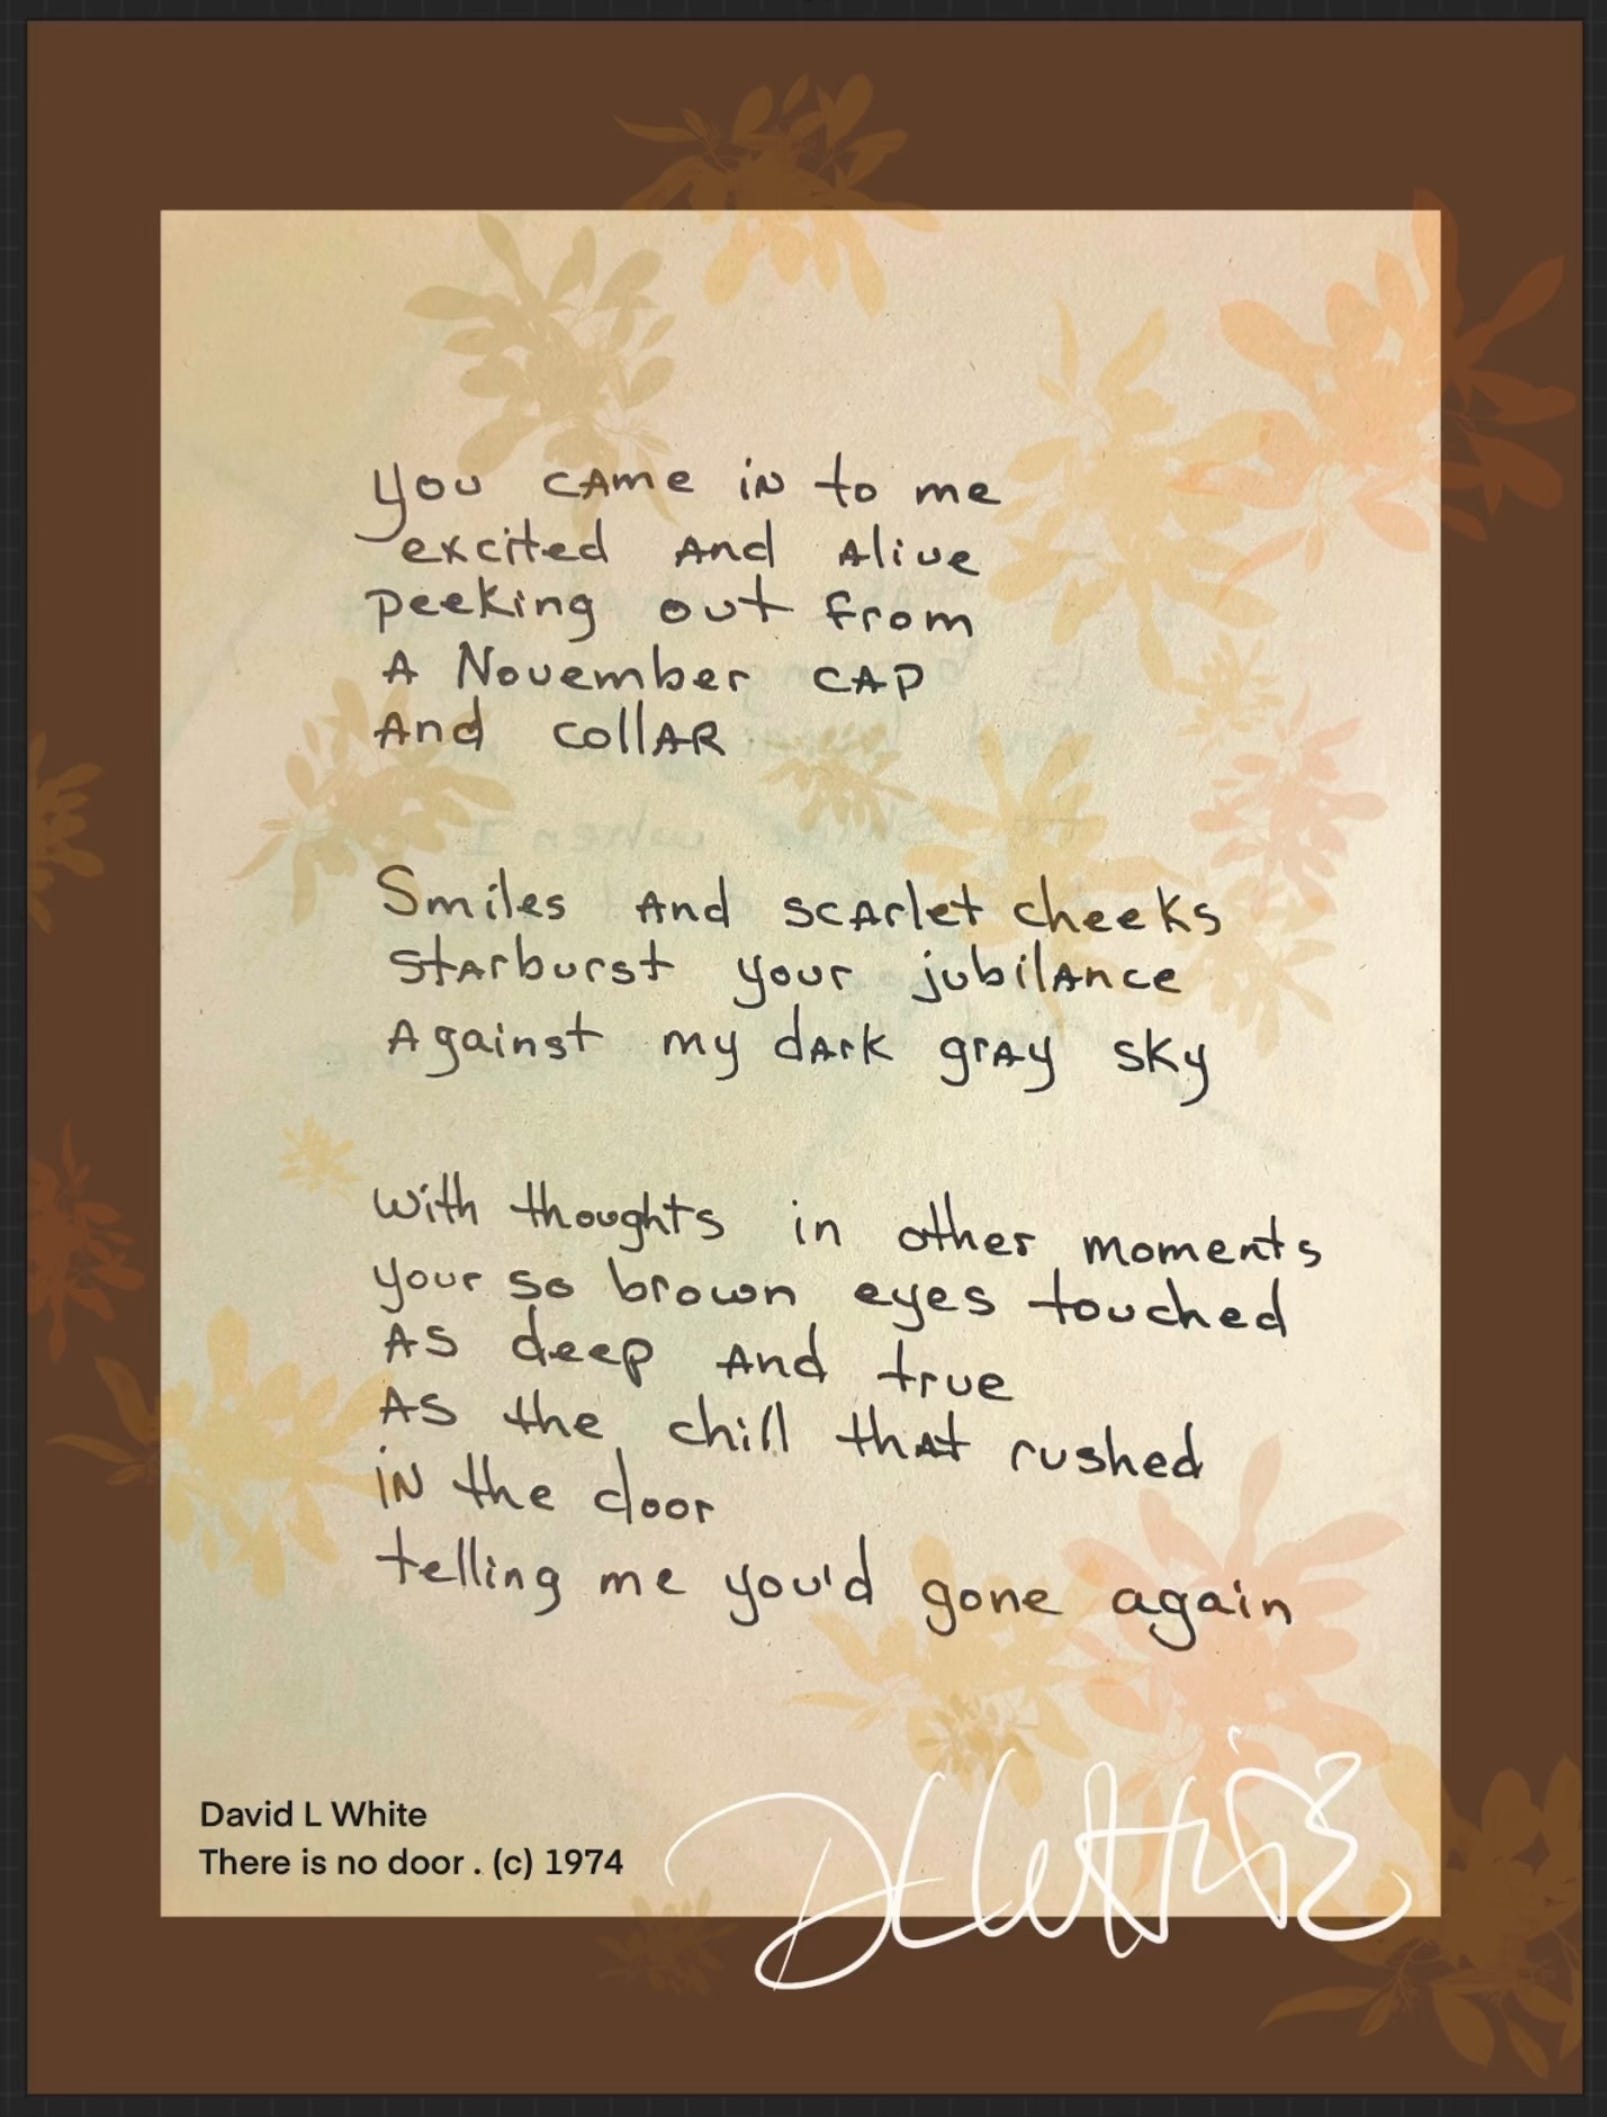 You came in to me
excited and alive
peeking out from
A November cap
And collar
Smiles and scarlet cheeks
starburst your jubilance
Against my dark gray sky
With thoughts in other moments
your so brown eyes touched
As deep and true
As the chill that rushed
in the door
telling me you'd gone again
David L White
There is no door . (c) 1974
DLWHitE